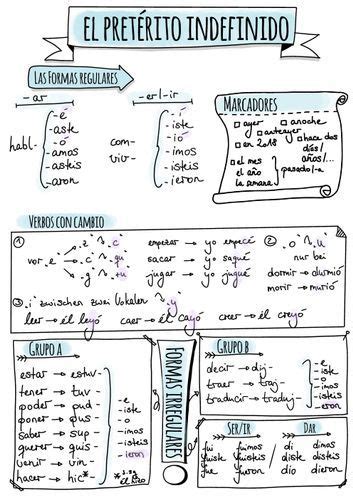 EL PRETÉRITO INDEFINIDO
LAS FORMAS REGULARES
-ar
habl-
-é
-aste
-ó
-amos
-asteis
-aron
-er/-ir
com-
viv-
-í
-iste
-ió
-imos
-isteis
-ieron
MARCADORES
ayer
anoche
anteayer
en 2018
hace dos días/años/...
el mes
el año
la semana
pasado/-a
VERBOS CON CAMBIO
① vor e
"z" ~ "c"
"c" ~ "qu"
"g" ~ "gu"
empezar → yo empecé
sacar → yo saqué
jugar → yo jugué
② "o" ~ "u"
nur bei
dormir → durmió
morir → murió
③ "i" zwischen zwei Vokalen ~ "y"
leer → él leyó caer → él cayó creer → él creyó
GRUPO A
estar → estuv-
tener → tuv-
poder → pud-
poner → pus-
saber → sup-
querer → quis-
venir → vin-
hacer → hic*
-e
-iste
-o
-imos
-isteis
-ieron
él hizo
FORMAS IRREGULARES
GRUPO B
decir → dij-
traer → traj-
traducir → traduj-
-e
-iste
-o
-imos
-isteis
-eron
SER/IR
fui fuimos
fuiste fuisteis
fue fueron
DAR
di dimos
diste disteis
dio dieron